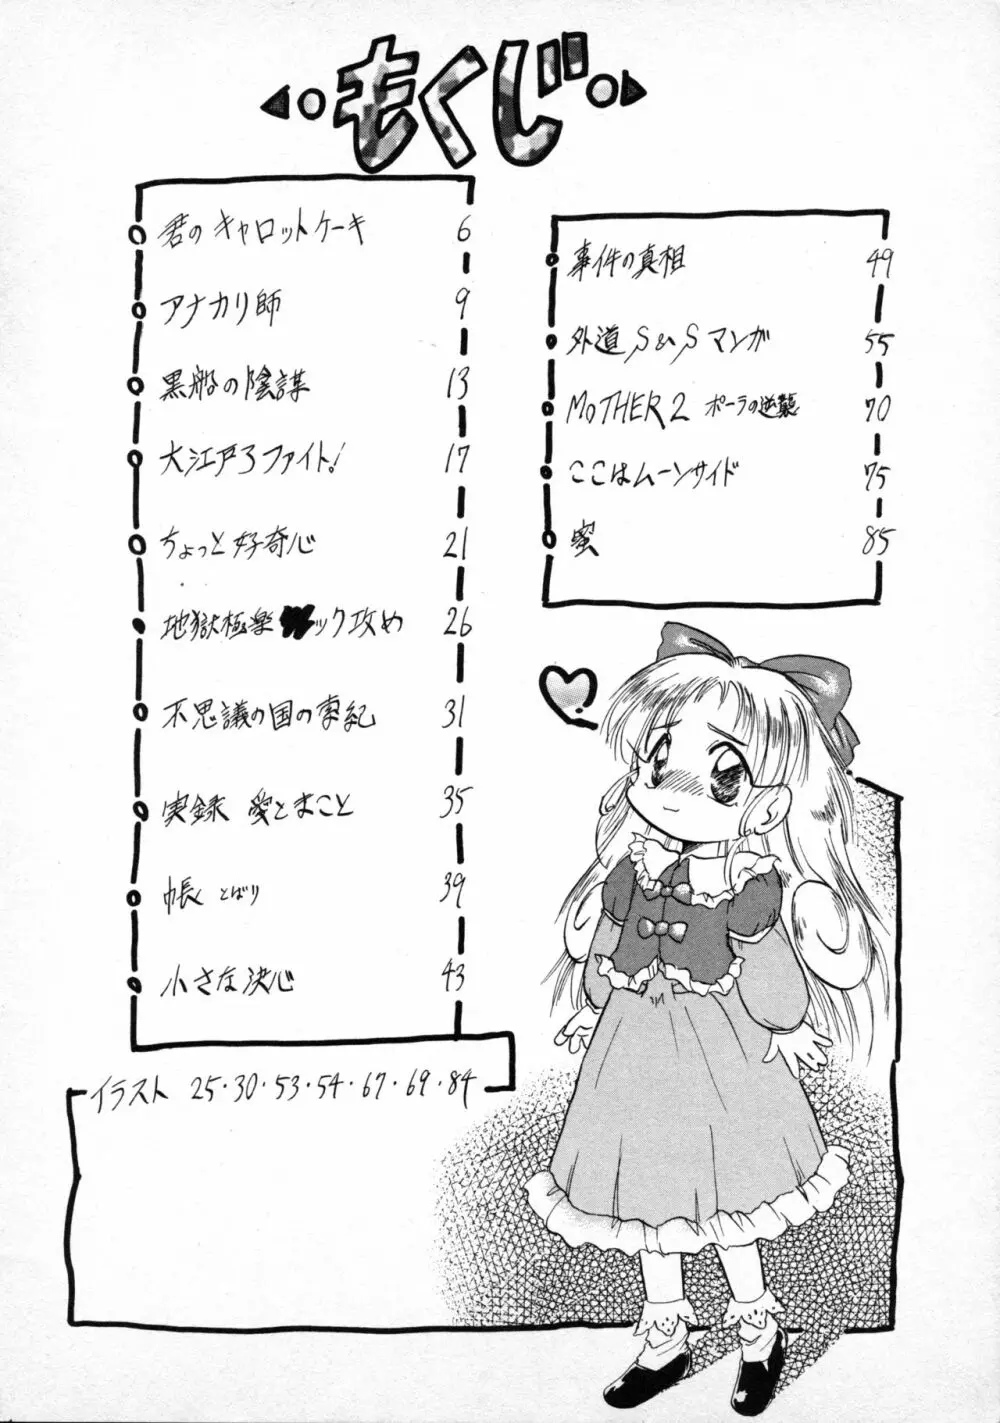 もくじ
君のキャロットケーキ 6
アナカリ師 9
黒船の陰謀 13
大江戸ろファイト! 17
ちょっと好奇心 21
地獄極楽ック攻め 26
不思議の国の亜紀 31
実録 愛とまこと 35
帳 とばり 39
小さな決心 43
イラスト 25・30・53・54・67・69・84
事件の真相 49
外道S&Sマンガ 55
MOTHER2 ポーラの逆襲 70
ここはムーンサイド 75
蜜 85